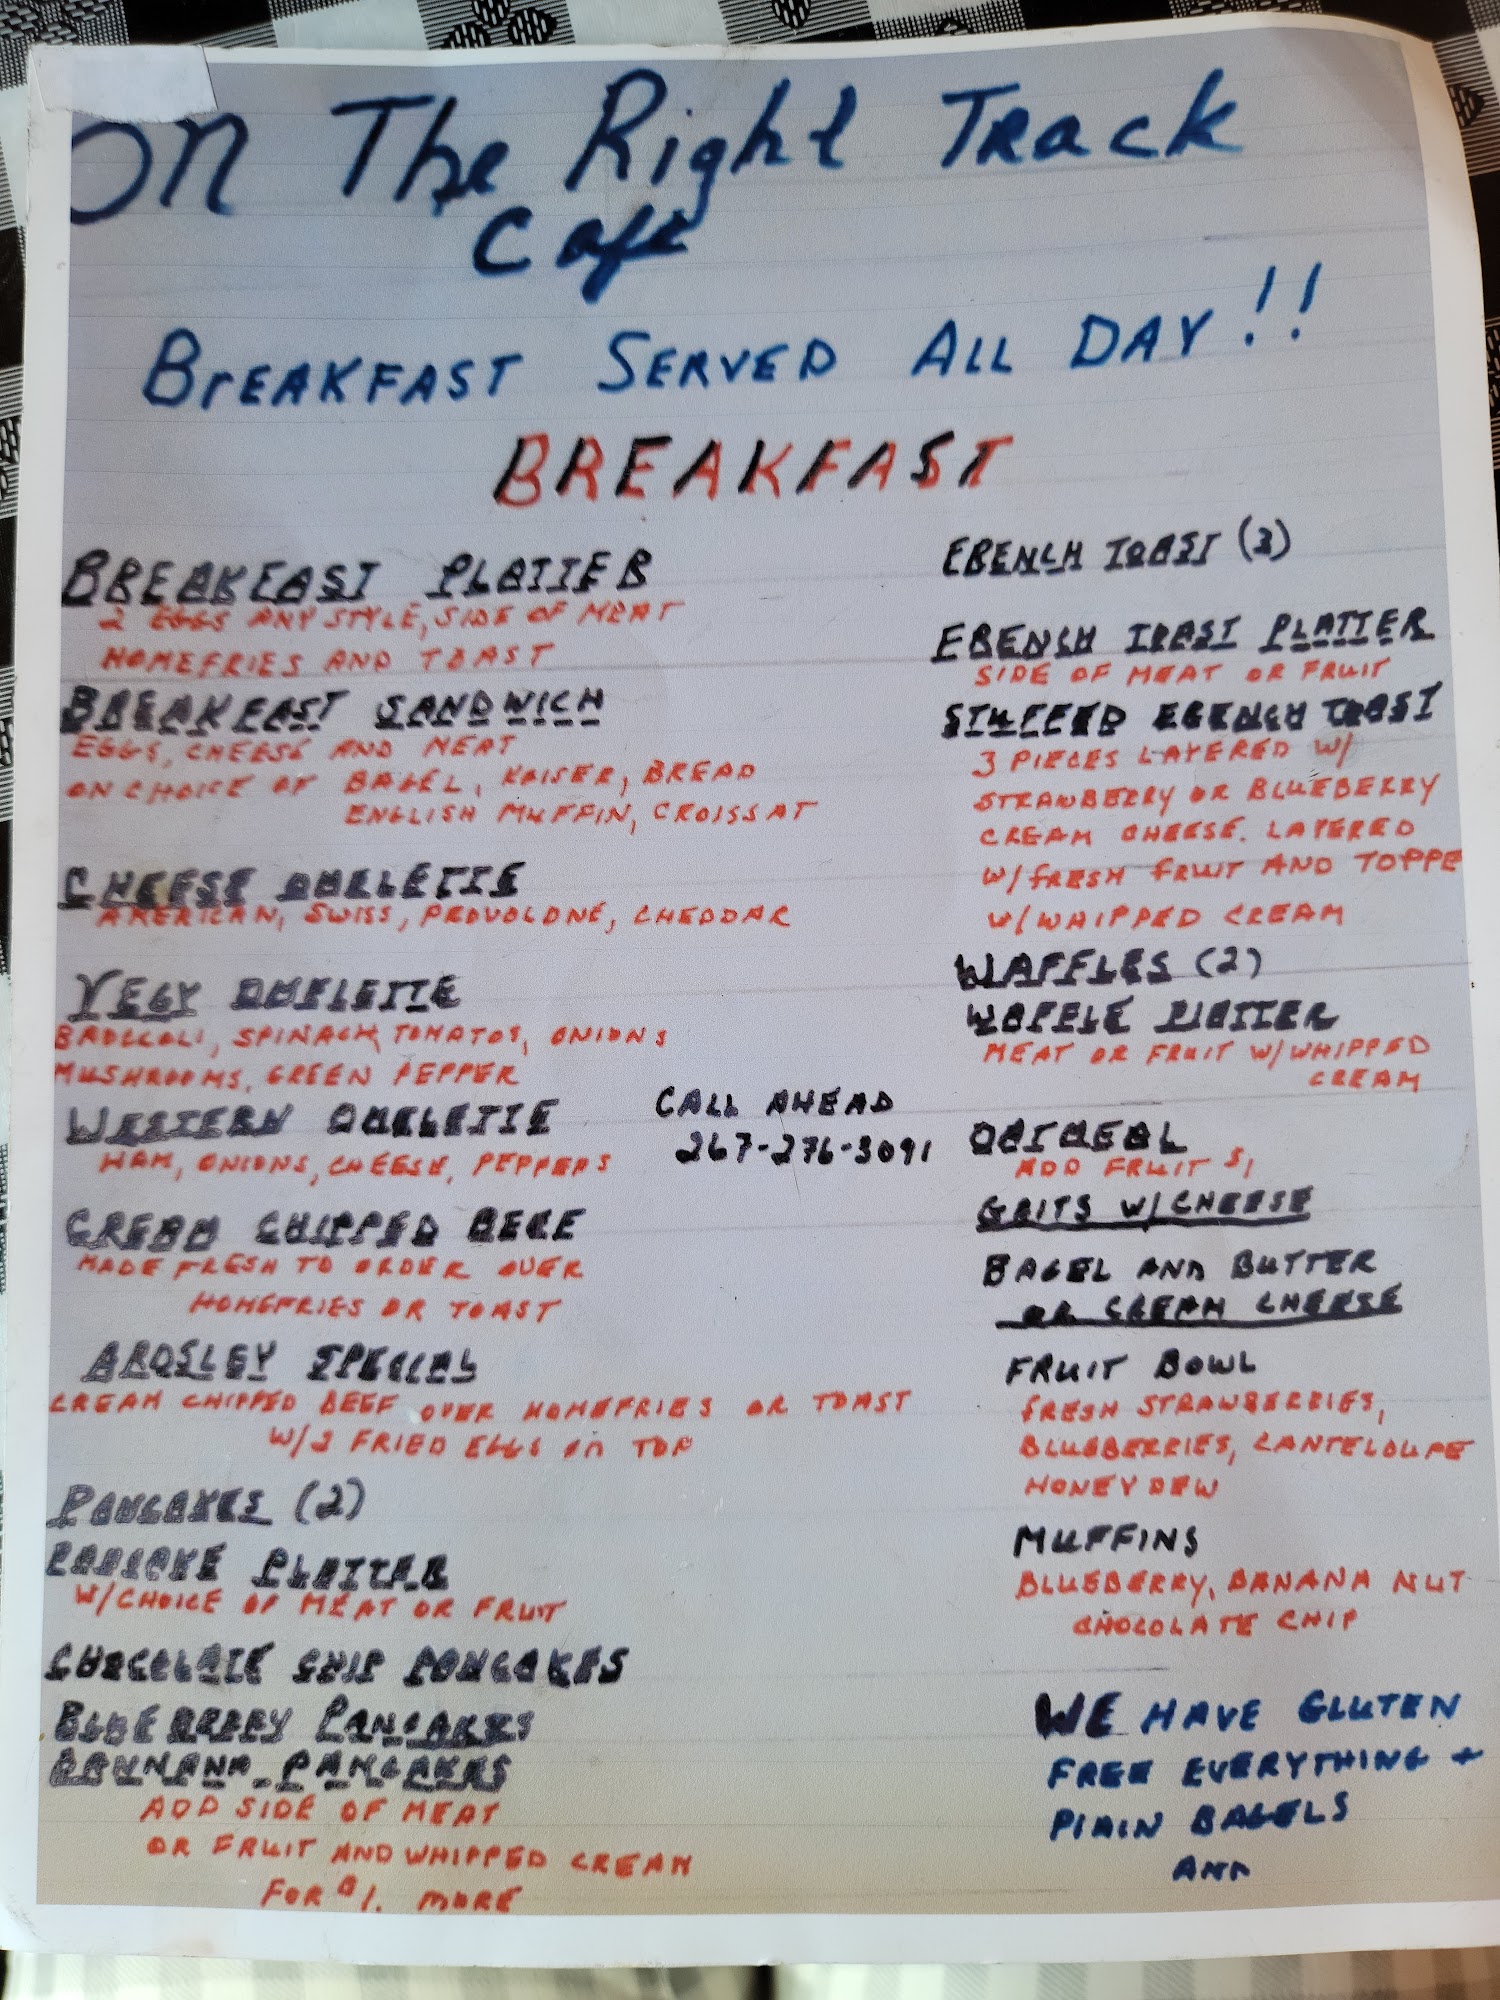 On The Right Track
Cafe
BrEAKFAST SERVED ALL DAY!!
BREAKFAST
BREAKFAST PLATTER
2 EGGS ANY STYLE, SIDE OF MEAT
HOMEFRIES AND TOAST
BREAKFAST SANDWICH
EGGS, CHEESE AND MEAT
ON CHOICE OF BAGEL, KAISER, BREAD
ENGLISH MUFFIN, CROISSAT
CHEESE OMELETTE
AMERICAN, SWISS, PROVOLONE, CHEDDAR
VEGY OMELETTE
BROCCOLI, SPINACH, TOMATOS, ONIONS
MUSHROOMS, GREEN PEPPER
WESTERN OMELETTE
HAM, ONIONS, CHEESE, PEPPERS
CREAM CHIPPED BEEF
MADE FRESH TO ORDER OVER
HOMEFRIES OR TOAST
ARDSLEY SPECIAL
CREAM CHIPPED BEEF OVER HOMEFRIES OR TOAST
W/2 FRIED EGGS ON TOP
PANCAKES (2)
PANCAKE PLATTER
W/CHOICE OF MEAT OR FRUIT
CHOCOLATE CHIP PANCAKES
BLUEBERREY PANCAKES
BANNANA PANCAKES
ADD SIDE OF MEAT
OR FRUIT AND WHIPPED CREAM
FOR $1. MORE
CALL AHEAD
267-276-3091
FRENCH TOAST (3)
FRENCH TOAST PLATTER
SIDE OF MEAT OR FRUIT
STUFFED FRENCH TOAST
3 PIECES LAYERED W/
STRAWBERRY OR BLUEBERRY
CREAM CHEESE. LAYERED
W/FRESH FRUIT AND TOPPE
W/WHIPPED CREAM
WAFFLES (2)
WAFFLE PLATTER
MEAT OR FRUIT W/WHIPPED
CREAM
OATMEAL
ADD FRUIT $1
GRITS W/CHEESE
BAGEL AND BUTTER
OR CREAM CHEESE
FRUIT BOWL
FRESH STRAWBERRIES,
BLUEBERRIES, CANTELOUPE
HONEYDEW
MUFFINS
BLUEBERRY, BANANA NUT
CHOCOLATE CHIP
WE HAVE GLUTEN
FREE EVERYTHING +
PLAIN BAGELS
AND